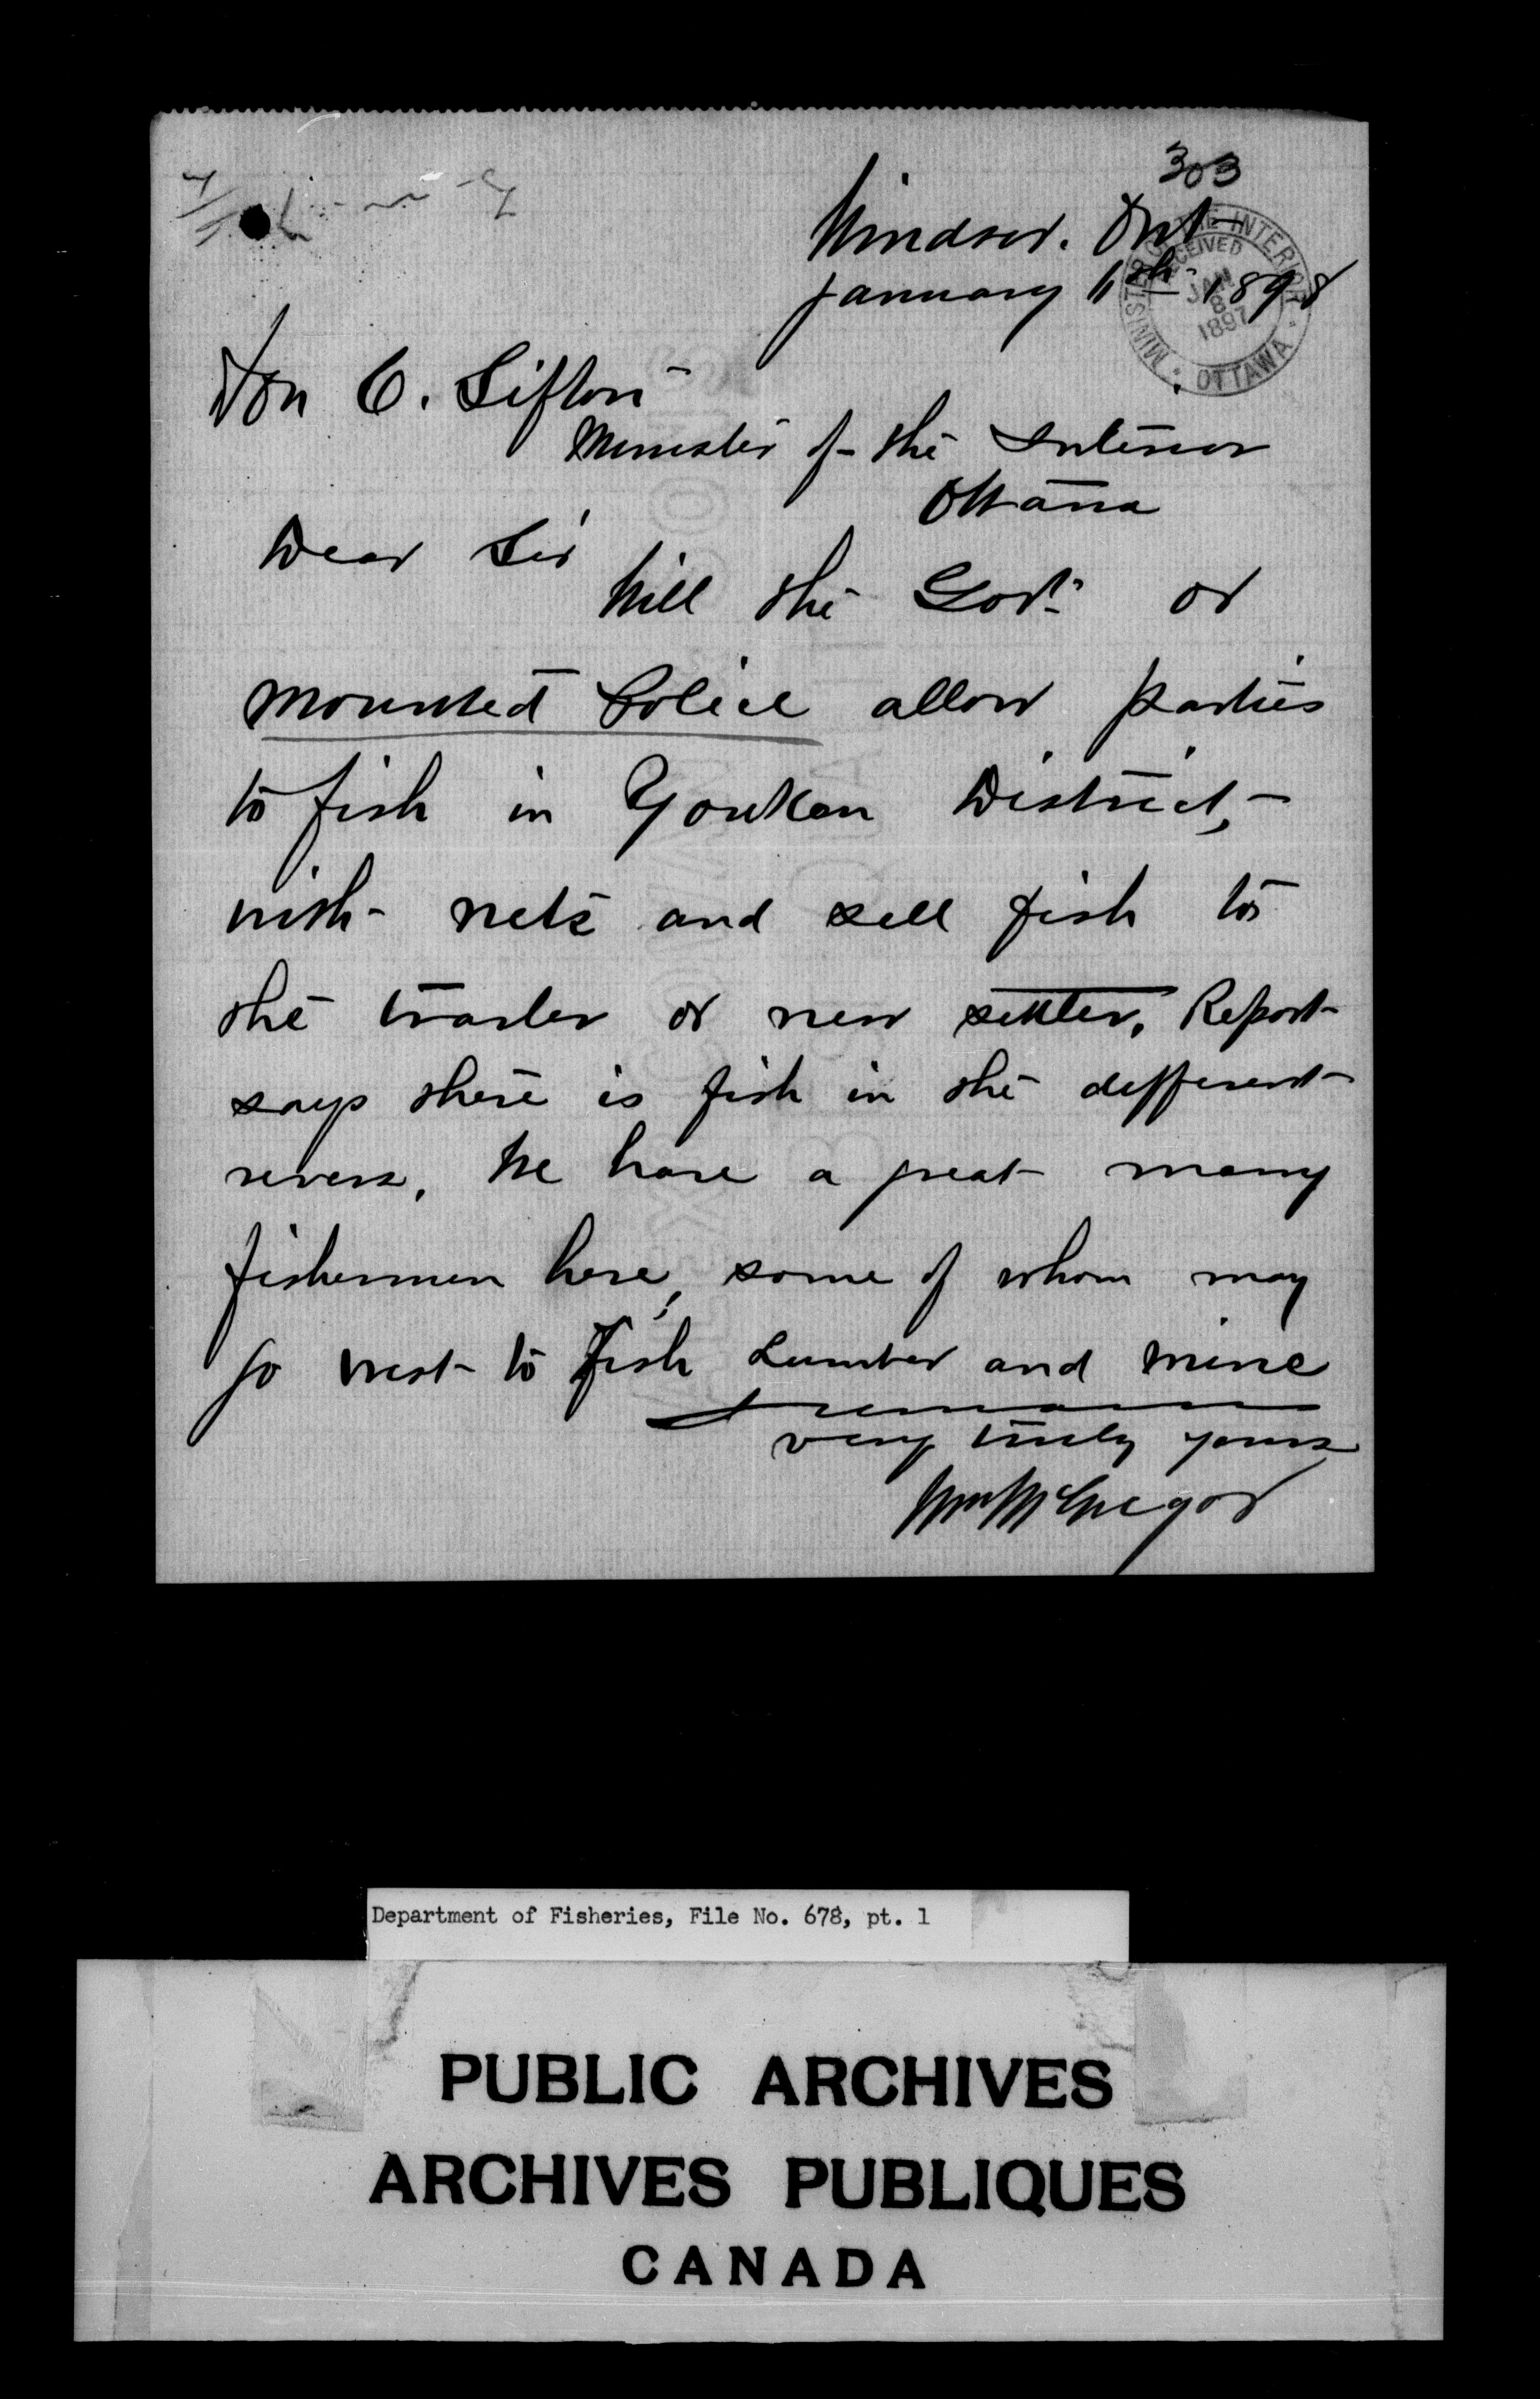 303
Windsor. Ont
January 11th 1898
MINISTER OF THE INTERIOR
RECEIVED
JAN
8
1897
OTTAWA
Hon C. Sifton
Minister of the Interior
Ottawa
Dear Sir
Will the Govt. or
Mounted Police allow parties
to fish in Youkon District,
with nets and sell fish to
the trader or new settler. Report
says there is fish in the different
rivers. We have a great many
fishermen here, some of whom may
go west to fish Lumber and mine
very truly yours
Wm McGregor
Department of Fisheries, File No. 678, pt. 1
PUBLIC ARCHIVES
ARCHIVES PUBLIQUES
CANADA